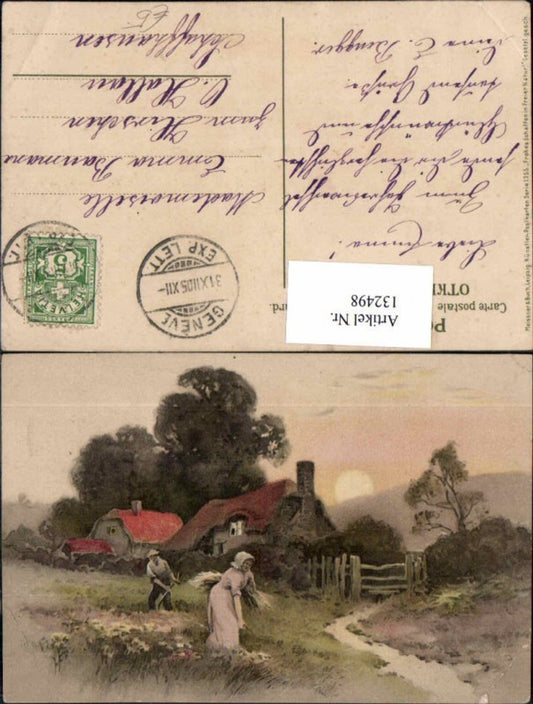 Liebe Emma!
Zum Jahreswechsel
sende Dir die herzlichsten
Glückwünsche und
tausend Grüsse.
Anna E. Brugger.
Mademoiselle
Emma Baumann
zum Hirschen
O. Hallau
Schaffhausen
Carte postale
OTKP
Artikel Nr.
132498
GENÈVE
31.XII.05.XII-
EXP. LETT.
5
Meissner & Buch, Leipzig. Künstler-Postkarten Serie 1355. "Frohes Schaffen in freier Natur" Gesetzl. gesch.